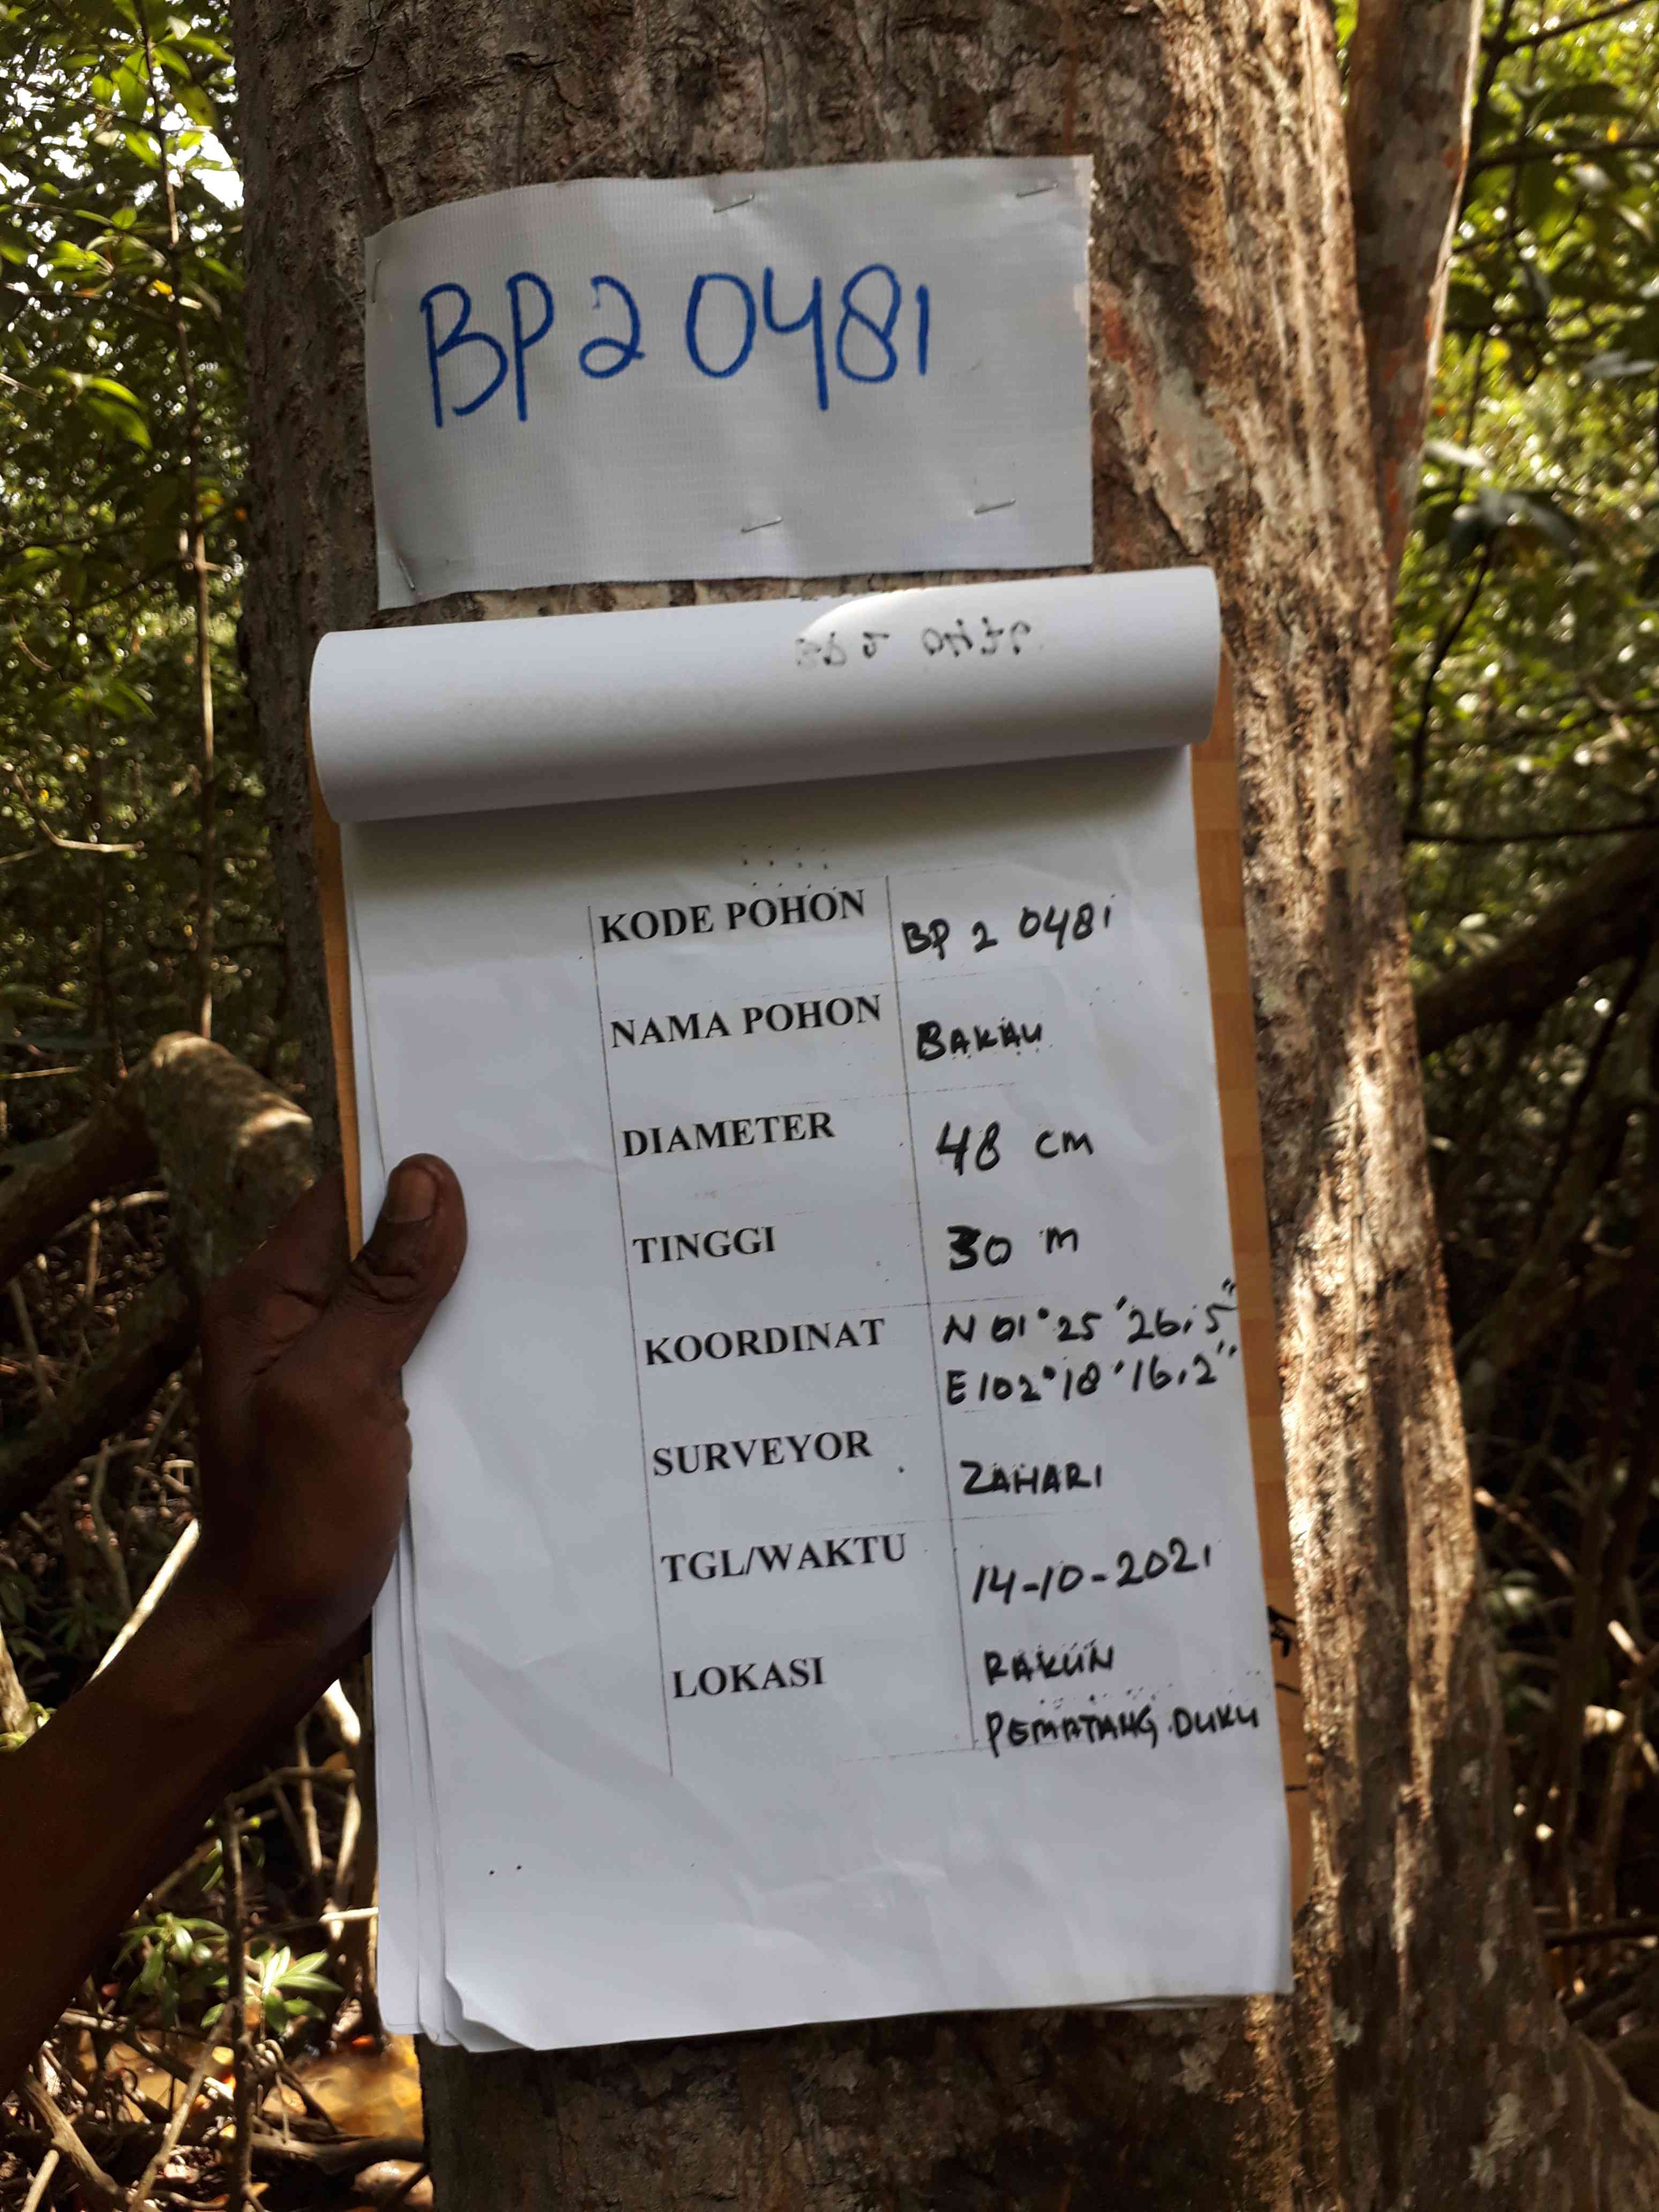 BP2 0481
KODE POHON BP 2 0481
NAMA POHON BAKAU
DIAMETER 48 cm
TINGGI 30 m
KOORDINAT N 01°25'26,5"
E 102°18'16,2"
SURVEYOR ZAHARI
TGL/WAKTU 14-10-2021
LOKASI RAKUN
PEMATANG DUKU